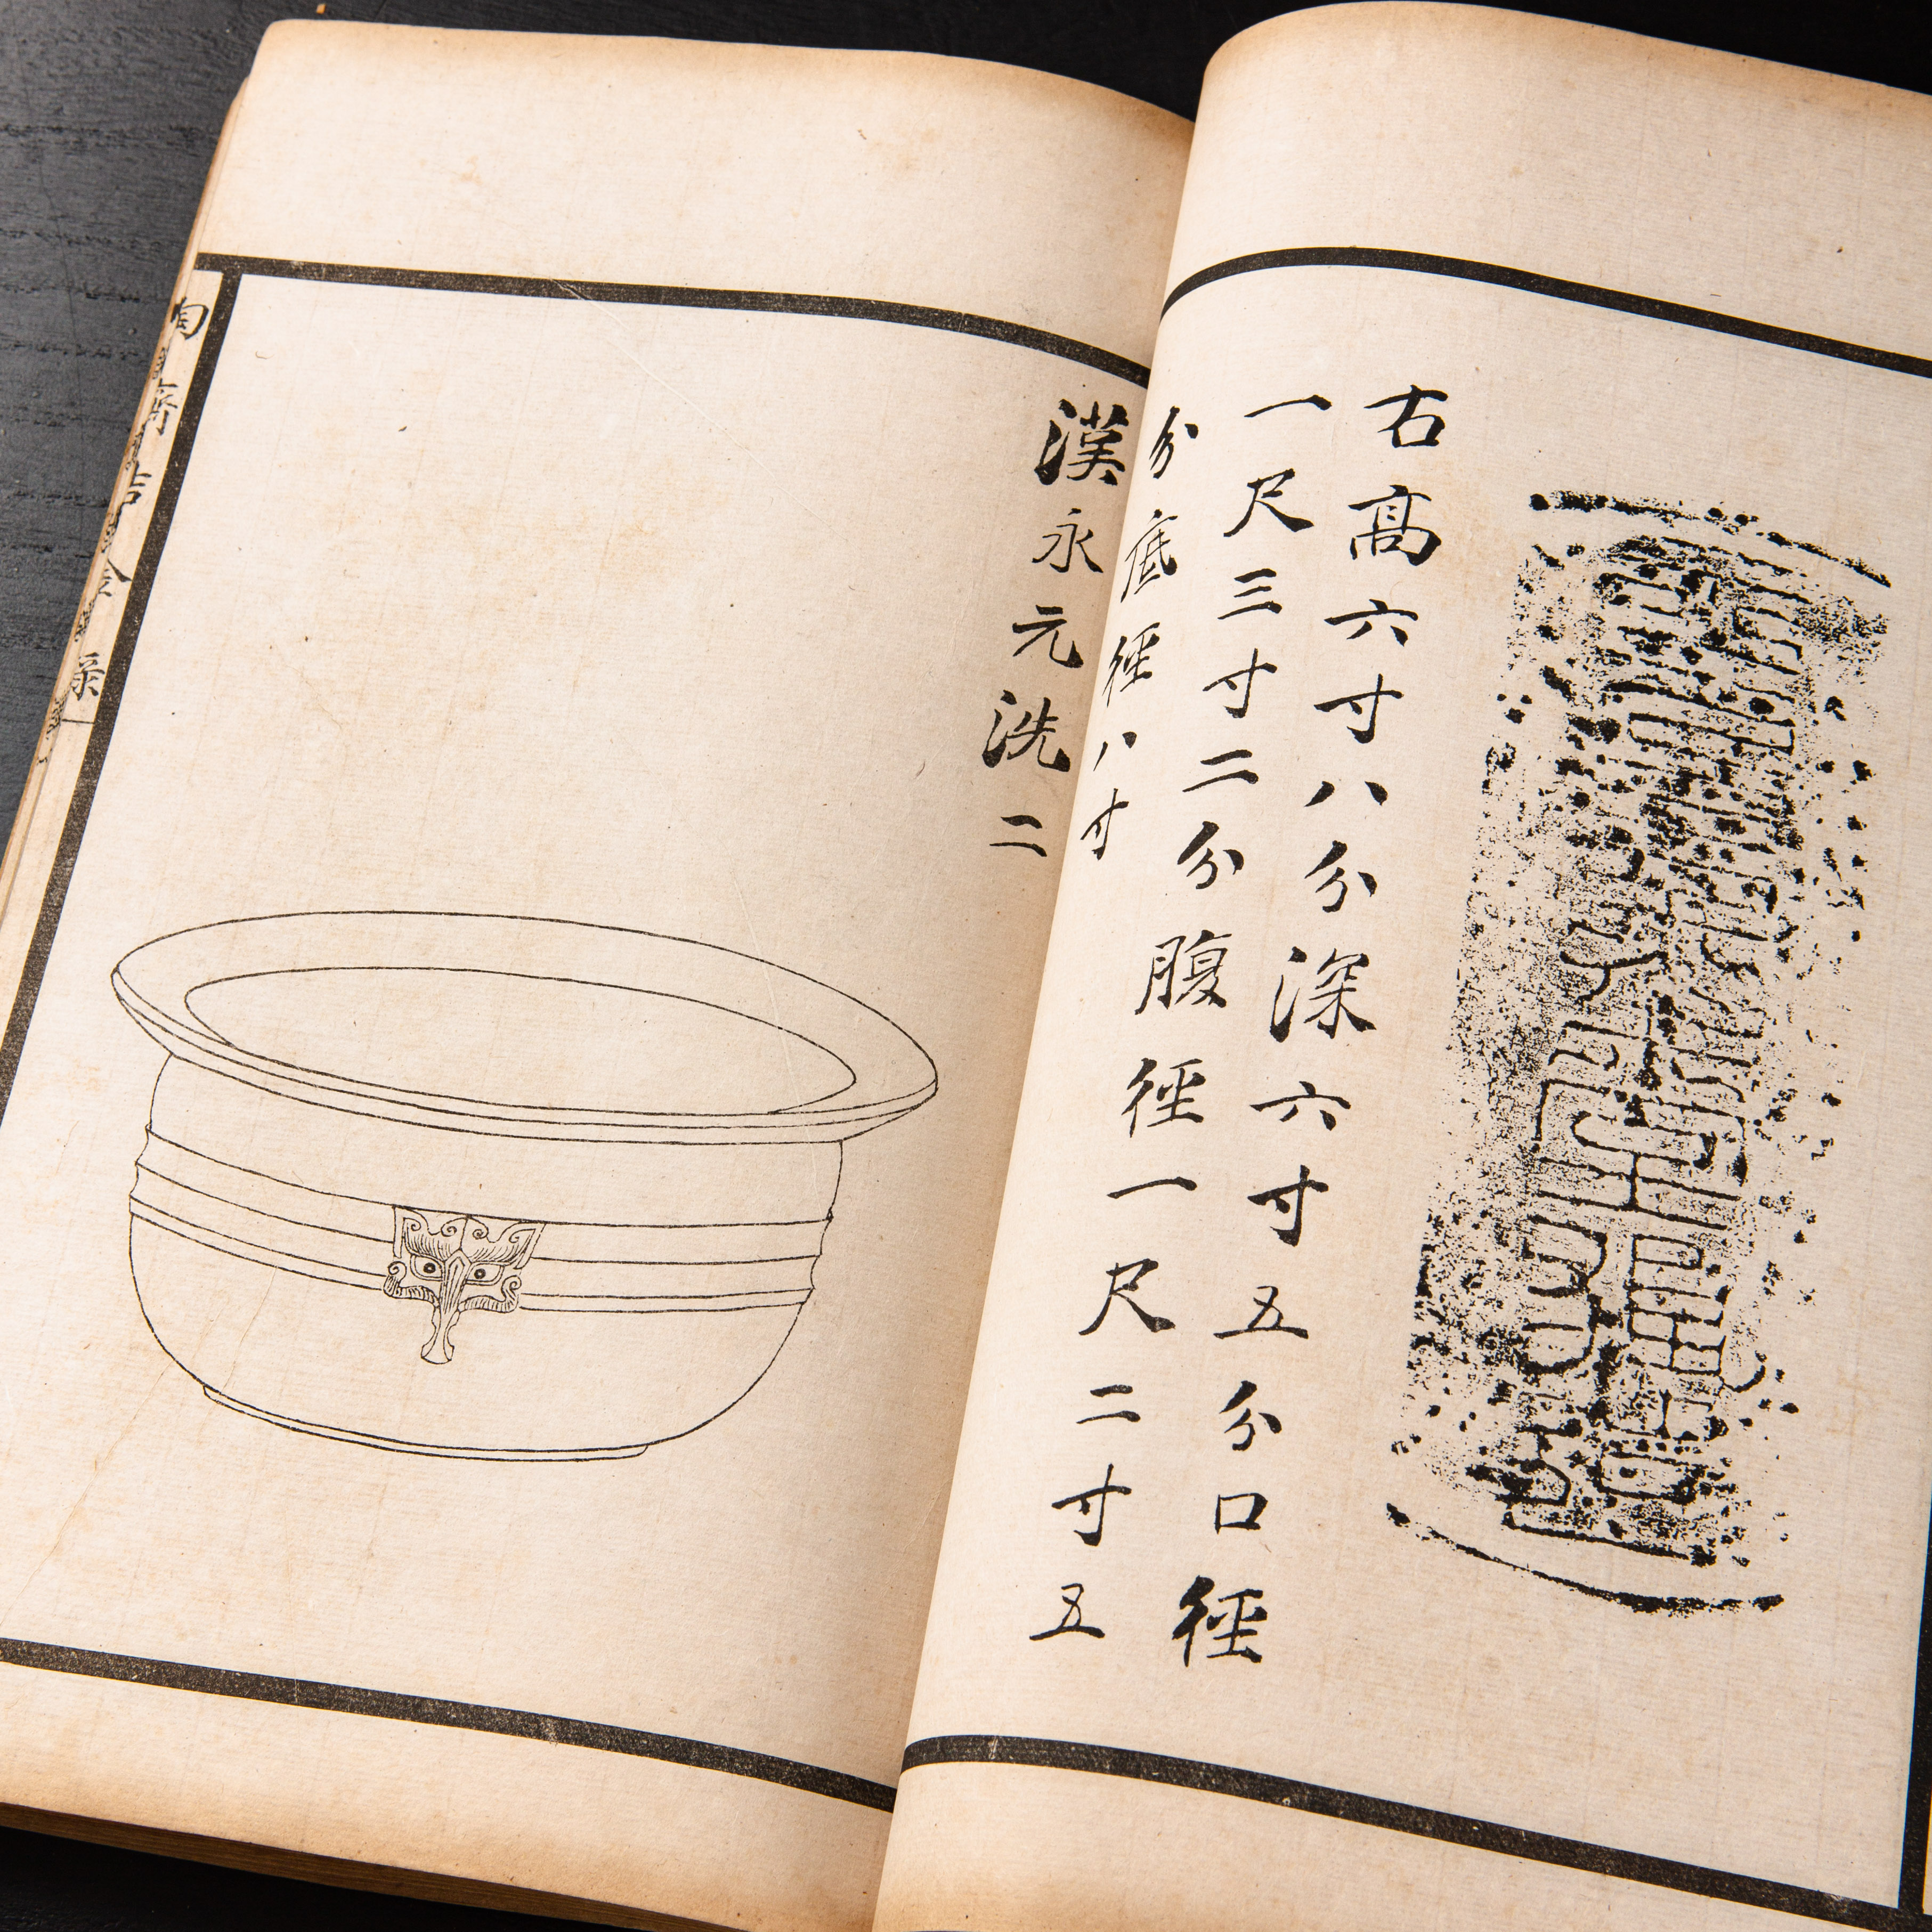 右高六寸八分深六寸五分口徑
一尺三寸二分腹徑一尺二寸五
分底徑八寸
漢永元洗二
陶齋吉金錄